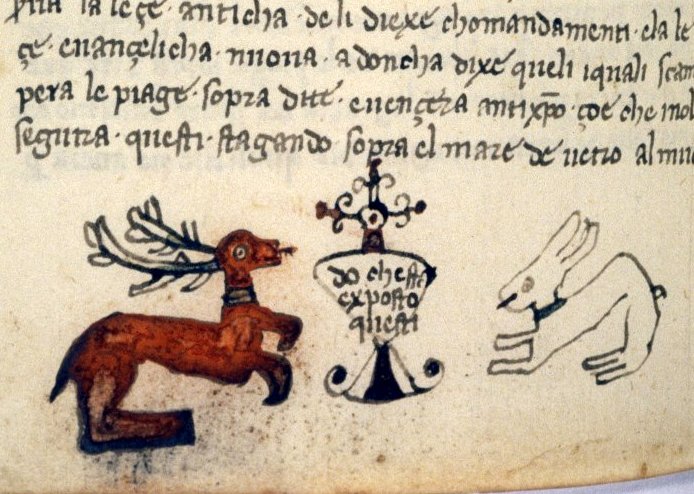 la leçe · anticha · de li diexe chomandamenti · ela le
çe · euançelicha · nuoua · adoncha dixe queli iquali scam
pera le piage · sopra dite · euençera antixp̄o · çoe che mol
seguira · questi · stagando sopra el mare de uetro al
do che ste
exposto
questi